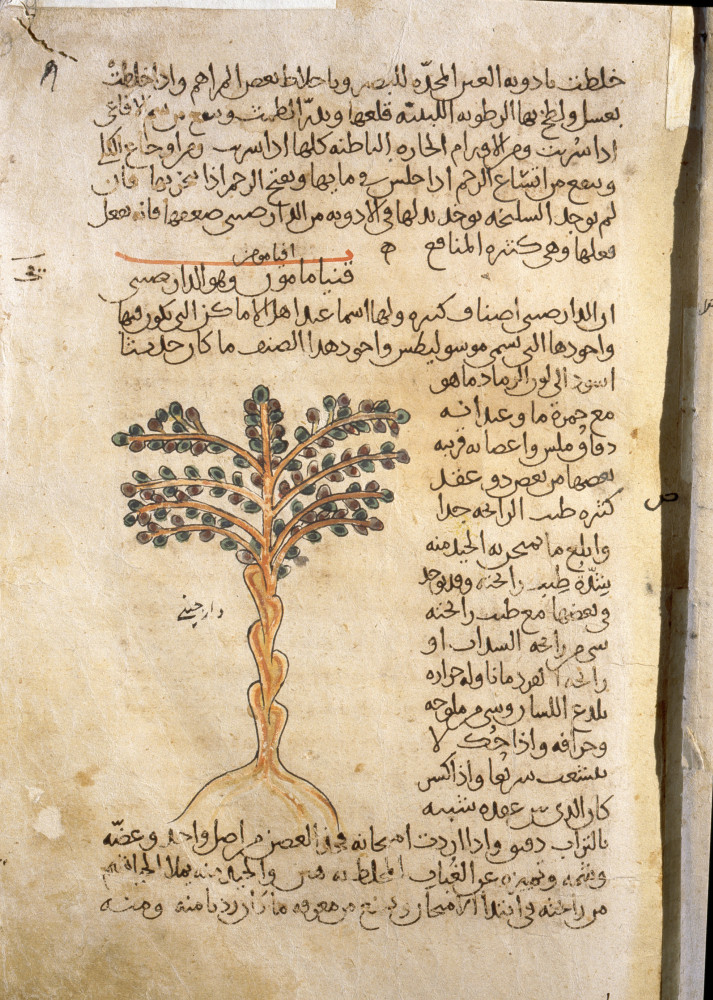 خلطت بادوية العين المحدة للبصر وباخلاط بعض المراهم واذا خلطت
بعسل ولطخ بها الرطوبة اللبنية قلعها ويدر الطمث وينفع من سم الافاعي
اذا شربت ومن الاورام الحارة الباطنة كلها اذا شربت ومن اوجاع الكلى
وينفع من اتساع الرحم اذا جلس في مايها ويفتح الرحم اذا تدخن بها فان
لم يوجد السليخة يوجد بدلها في الادوية من الدارصيني ضعفها فانه يفعل
فعلها وهي كثيرة المنافع
اقياموس
قنيامامون وهو الدارصيني
ان الدارصيني اصناف كثيرة ولها اسما عند اهل الاماكن التي يكون فيها
واجودها التي تسمى موسوليطس واجود هذا الصنف ما كان حديثا
اسود الى لون الرماد ما هو
مع حمرة ما وعيدانه
دقاق ملس واغصانه قريبة
بعضها من بعض ذو عقد
كثيرة طيب الرائحة جدا
وابلغ ما يمتحن به الجيد منه
بشدة طيب رائحته وقد يوجد
في بعضها مع طيب رائحته
شي من رائحة السذاب او
رائحة القردمانا وله حرارة
يلذع اللسان وشي من ملوحة
وحرافة واذا حك لا
يتشعب سريعا واذا كسر
كان الذي بين عقده شبيه
بالتراب دقيق واذا اردت امتحانه فخذ الغصن من اصل واحد وعضه
وشمه وتميزه عن الفتات المختلط به هين والجيد منه يملا الخياشيم
من رائحته في ابتدا الامتحان ويمنع من معرفة ما كان رديا منه ومنه
دارچيني